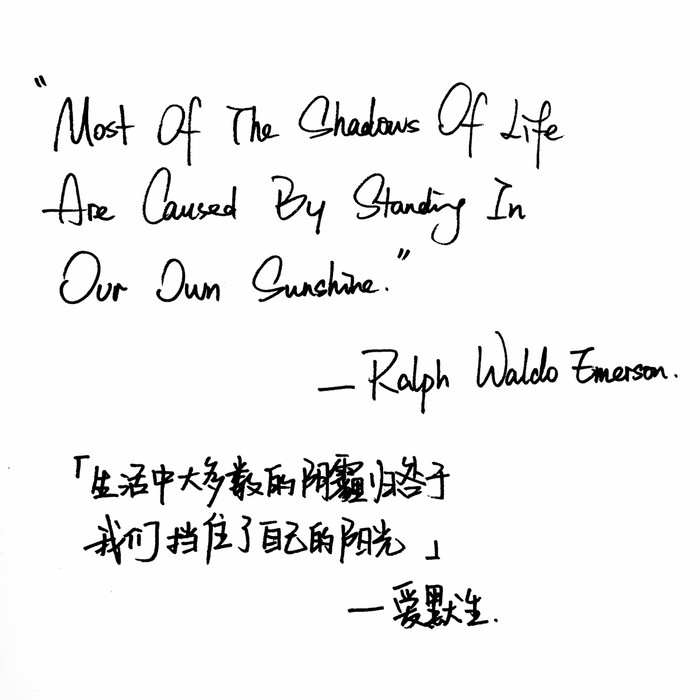 "Most Of The Shadows Of Life
Are Caused By Standing In
Our Own Sunshine."
—Ralph Waldo Emerson.
「生活中大多数的阴霾归咎于
我们挡住了自己的阳光」
—爱默生.